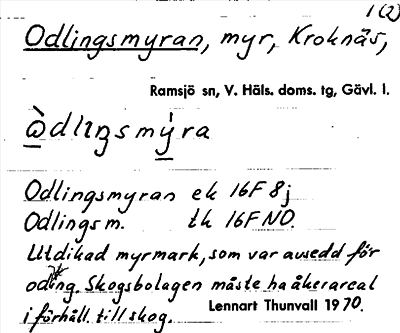 1(2)
Odlingsmyran, myr, Kroknäs,
Ramsjö sn, V. Häls. doms. tg, Gävl. l.
ὼdlıŋsmýra
Odlingsmyran ek 16F 8j
Odlingsm. tk 16F NO.
Utdikad myrmark, som var avsedd för
odling. Skogsbolagen måste ha åkerareal
i förhåll. till skog. Lennart Thunvall 1970.